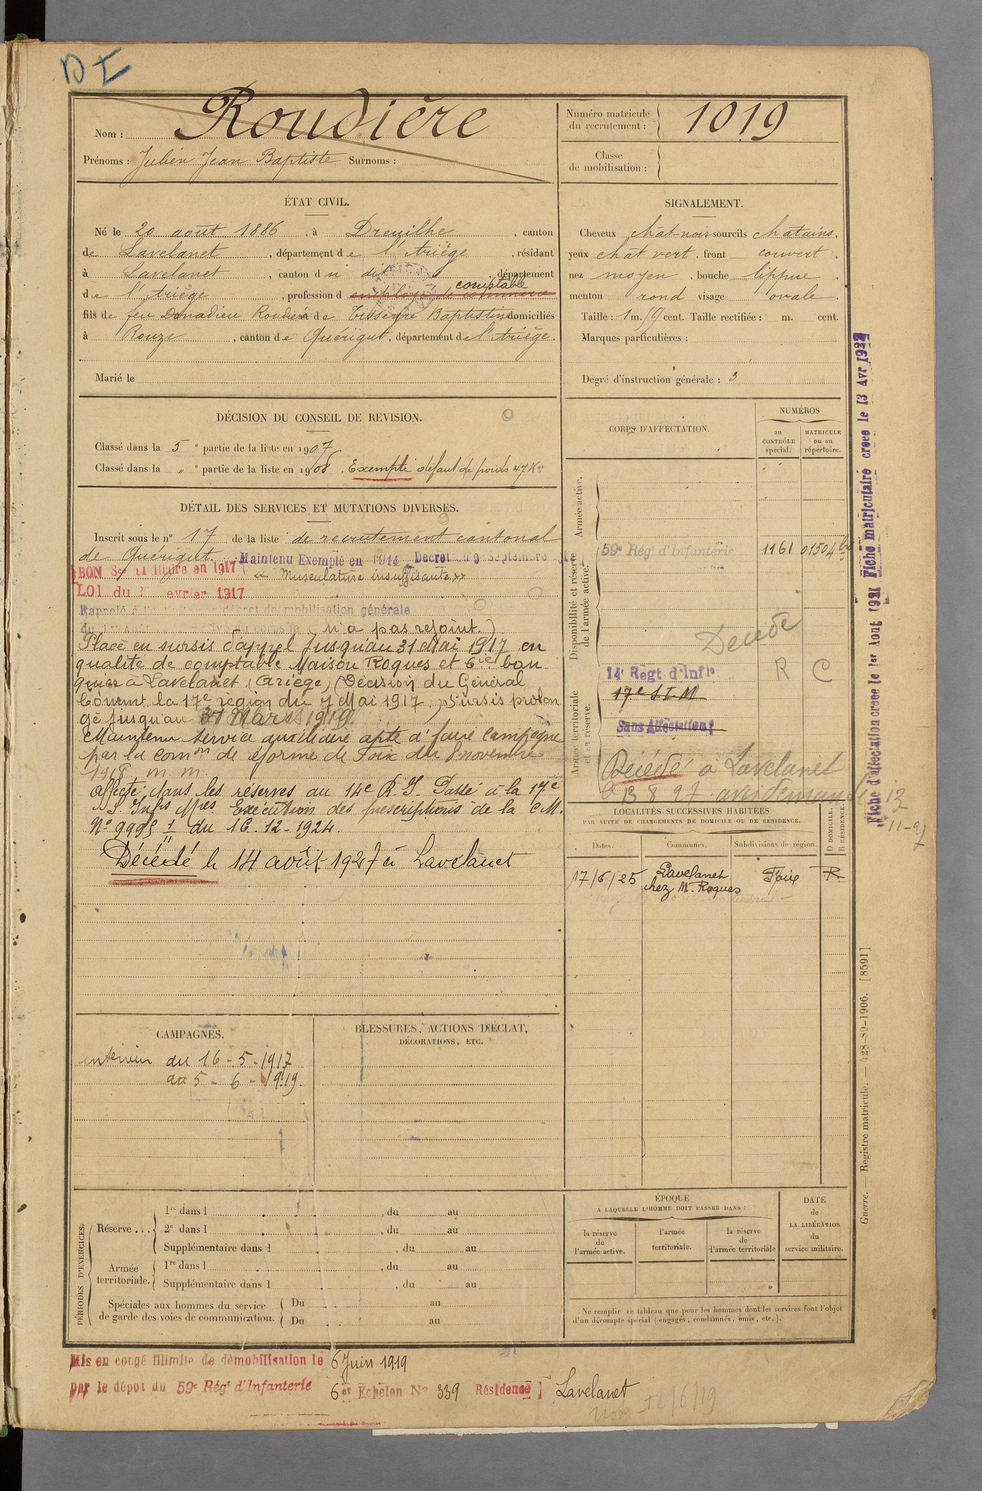 DE
Nom : Roudière
Prénoms : Julien Jean Baptiste Surnoms :
Numéro matricule du recrutement : 1019
Classe de mobilisation :
ÉTAT CIVIL.
Né le 20 août 1886, à Dreuilhe, canton
de Lavelanet, département de l'Ariège, résidant
à Lavelanet, canton d dit, département
de l'Ariège, profession d employé de commerce comptable
fils de feu Donadieu Roudière et de Tisseyre Baptistine domiciliés
à Rouze, canton de Quérigut, département de l'Ariège.
Marié le
SIGNALEMENT.
Cheveux chat-noir sourcils chatains.
yeux chat vert, front couvert
nez moyen, bouche lippue
menton rond visage ovale
Taille : 1 m. 59 cent. Taille rectifiée : m. cent.
Marques particulières :
Degré d'instruction générale : 3
DÉCISION DU CONSEIL DE REVISION.
Classé dans la 5e partie de la liste en 1907
Classé dans la " e partie de la liste en 1908. Exempté défaut de poids 47 Ks
DÉTAIL DES SERVICES ET MUTATIONS DIVERSES.
Inscrit sous le n° 17 de la liste de recrutement cantonal
de Quérigut. Maintenu Exempté en 1914 Decret du 9 Septembre
BON Sce en 1917 Musculature insuffisante
LOI du evrier 1917
Rappelé décret de mobilisation générale
(n'a pas rejoint.)
Placé en sursis d'appel jusqu'au 31 Mai 1917 en
qualité de comptable Maison Roques et Cie ban
quier à Lavelanet (Ariège) (Décision du Général
Commt la 17e région du 7 Mai 1917, Sursis prolon
gé jusqu'au 31 Mars 1919.
Maintenu service auxiliaire apte à faire campagne
par la Comon de réforme de Foix du 8 novembre
1918 m.m.
Affecté dans les réserves au 14e R.I. Passé à la 17e
S. Infrs Mres Exécution des prescriptions de la C.M.
N° 9995 1/11 du 16-12-1924.
Décédé le 14 août 1927 à Lavelanet
CORPS D'AFFECTATION.
NUMÉROS
au CONTRÔLE spécial.
MATRICULE ou au répertoire.
Armée active.
Disponibilité et réserve de l'armée active.
59e Régt d'Infanterie 1161 01504
Decede
R C
Armée territoriale et sa réserve.
14e Régt d'Infie
17e S.I.M
Sans Affectation
Décédé à Lavelanet
LOCALITÉS SUCCESSIVES HABITÉES
PAR SUITE DE CHANGEMENTS DE DOMICILE OU DE RÉSIDENCE.
Dates. Communes. Subdivisions de région. D DOMICILE. R RÉSIDENCE.
17/6/25 Lavelanet chez M. Roques Foix R
CAMPAGNES.
intérieur du 16-5-1917
au 5-6-1919.
BLESSURES, ACTIONS D'ÉCLAT,
DÉCORATIONS, ETC.
PÉRIODES D'EXERCICES.
Réserve...
1re dans l , du au
2e dans l , du au
Supplémentaire dans l , du au
Armée territoriale.
1re dans l , du au
Supplémentaire dans l , du au
Spéciales aux hommes du service de garde des voies de communication.
Du au
Du au
ÉPOQUE
À LAQUELLE L'HOMME DOIT PASSER DANS :
la réserve de l'armée active.
l'armée territoriale.
la réserve de l'armée territoriale
DATE DE LA LIBÉRATION du service militaire.
Ne remplir ce tableau que pour les hommes dont les services font l'objet
d'un décompte spécial (engagés, condamnés, omis, etc.).
Mis en congé illimité de démobilisation le 6 Juin 1919
par le dépôt du 59e Régt d'Infanterie 6e Echelon N° 339 Résidence Lavelanet
12/6/19
Fiche d'affectation créée le 1er Août 1921 Fiche matriculaire créée le 13 Avr 1922
Guerre. — Registre matricule. — 428-89-1906. [8591]